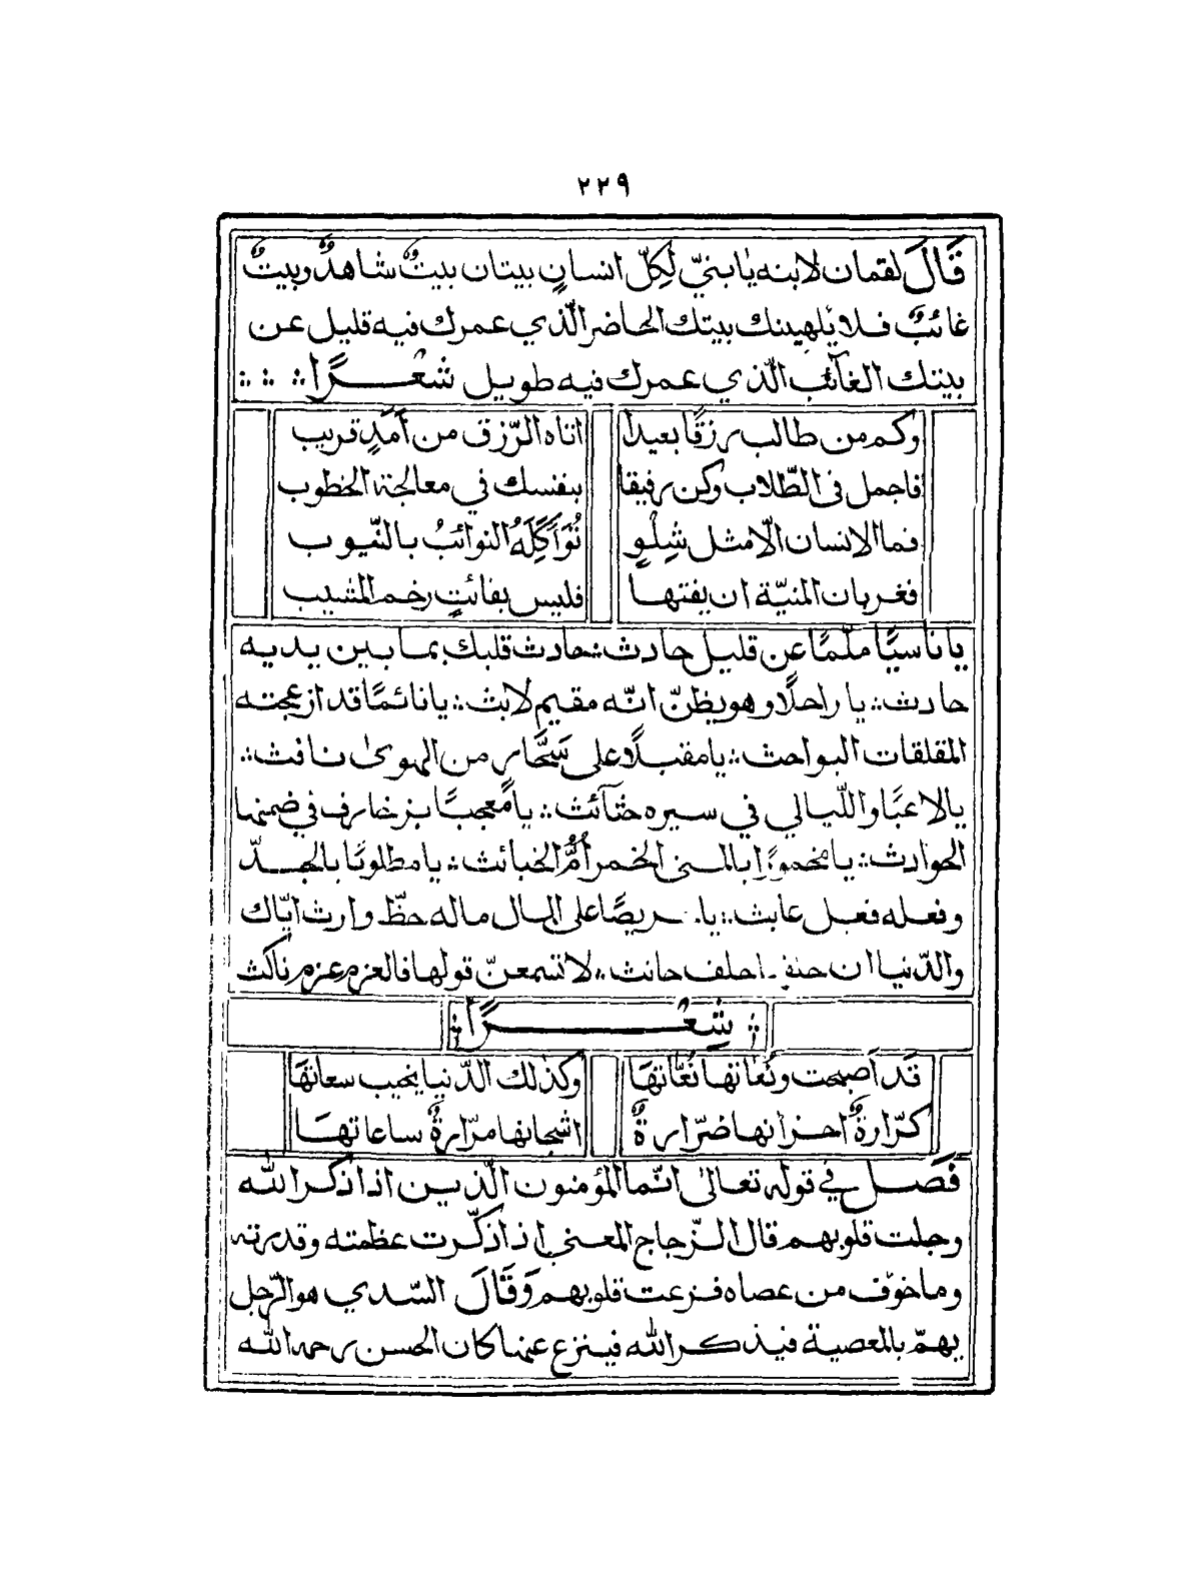 ٢٢٩
قَالَ لقمان لابنه يا بنيّ لكلّ انسانٍ بيتان بيتٌ شاهدٌ وبيتٌ
غائبٌ فلا يلهينك بيتك الحاضر الّذي عمرك فيه قليل عن
بيتك الغآئب الّذي عمرك فيه طويل شعْرًا
وكم من طالب رزقًا بعيدا اتاه الرّزق من أَمَدٍ قريب
فاجمل فى الطّلاب وكن رفيقا بنفسك في معالجة الخطوب
فما الانسان الّا مثل شِلْوٍ تُوَاَكِلَهُ النوائبُ بالنّيوب
فغربان المنيّة ان يفتها فليس بفائتٍ رخم المشيب
يا ناسيًا ملّمًا عن قليل حادث حادث قلبك بما بين يديه
حادث يا راحلًا وهو يظنّ انّه مقيم لابث يا نائمًا قد ازعجته
المقلقات البواحث يا مقبلًا على سَحَّار من الهوىٰ نافث
يا لاعبًا واللّيالي في سيره حثآئث يا معجبًا بزخارف في ضمنها
الحوادث يا مخمورًا بالمنى الخمر أُمُّ الخبائث يا مطلوبًا بالجدّ
وفعله فعل عابث يا حريصًا على المال ماله حظّ وارث ايّاك
والدّنيا ان حلف حانث لا تسمعنّ قولها فالعزم عزم ناكث
شِعْرًا
قد اَصبحت ونُعَاتها نُعَّاتهَا وكذلك الدّنيا يخيب سعاتهَا
كرّارةٌ احزانها ضرّارةٌ اشجانها مرّارةٌ ساعاتهَا
فَصَل في قوله تعالىٰ انّما المؤمنون الّذين اذا ذكر الله
وجلت قلوبهم قال الزّجاج المعنى اذا ذكّرت عظمته وقدرته
وما خوّف من عصاه فزعت قلوبهم وَقَالَ السّدي هو الرّجل
يهمّ بالمعصية فيذكر الله فينزع عنها كان الحسن رحمه الله